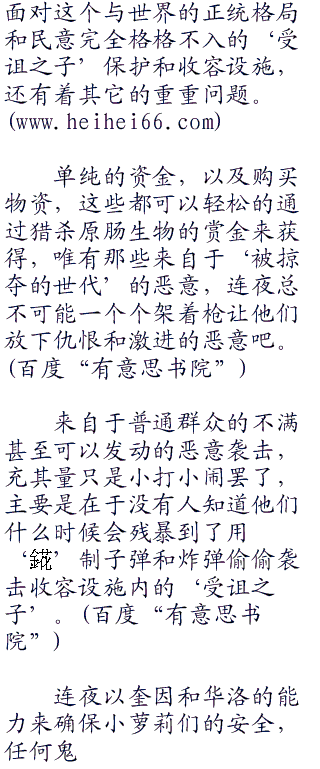 面对这个与世界的正统格局
和民意完全格格不入的‘受
诅之子’保护和收容设施，
还有着其它的重重问题。
(www.heihei66.com)
单纯的资金，以及购买
物资，这些都可以轻松的通
过猎杀原肠生物的赏金来获
得，唯有那些来自于‘被掠
夺的世代’的恶意，连夜总
不可能一个个架着枪让他们
放下仇恨和激进的恶意吧。
(百度“有意思书院”)
来自于普通群众的不满
甚至可以发动的恶意袭击，
充其量只是小打小闹罢了，
主要是在于没有人知道他们
什么时候会残暴到了用
‘錵’制子弹和炸弹偷偷袭
击收容设施内的‘受诅之
子’。(百度“有意思书
院”)
连夜以奎因和华洛的能
力来确保小萝莉们的安全，
任何鬼